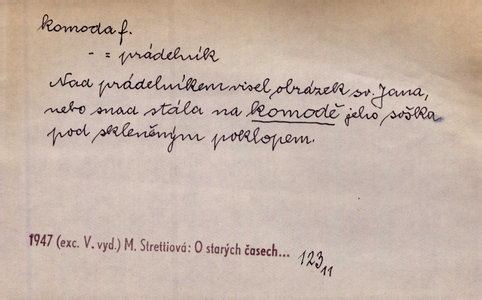 komoda f.
- = prádelník
Nad prádelníkem visel obrázek sv. Jana,
nebo snad stála na komodě jeho soška
pod skleněným poklopem.
1947 (exc. V. vyd.) M. Strettiová: O starých časech... 123
11